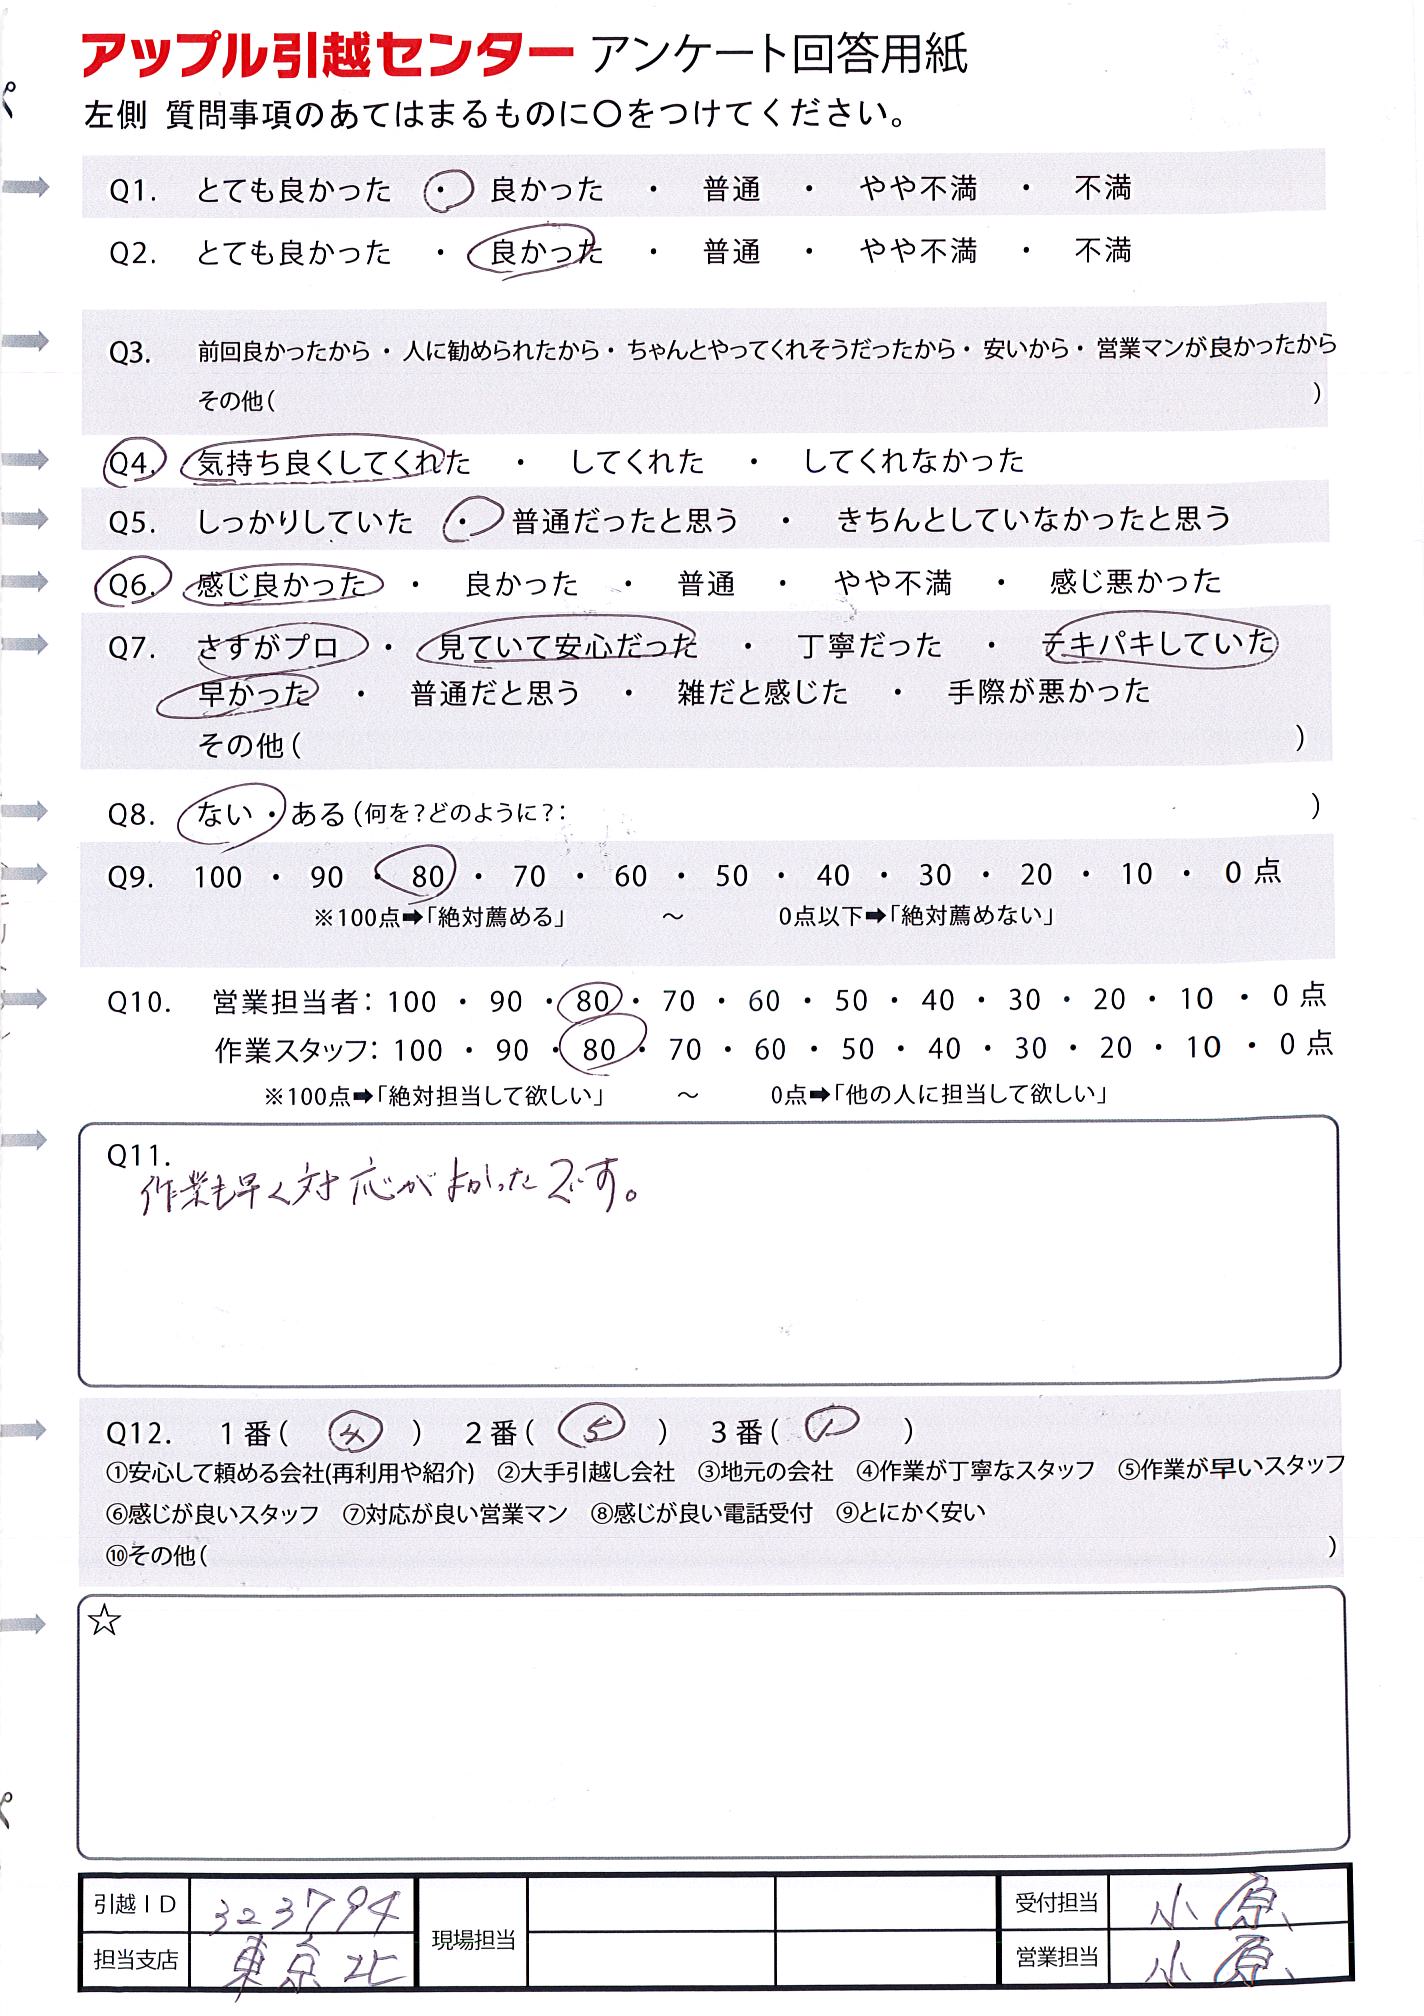 アップル引越センター アンケート回答用紙
左側 質問事項のあてはまるものに〇をつけてください。
Q1. とても良かった ・ 良かった ・ 普通 ・ やや不満 ・ 不満
Q2. とても良かった ・ 良かった ・ 普通 ・ やや不満 ・ 不満
Q3. 前回良かったから・人に勧められたから・ちゃんとやってくれそうだったから・安いから・営業マンが良かったから
その他( )
Q4. 気持ち良くしてくれた ・ してくれた ・ してくれなかった
Q5. しっかりしていた ・ 普通だったと思う ・ きちんとしていなかったと思う
Q6. 感じ良かった ・ 良かった ・ 普通 ・ やや不満 ・ 感じ悪かった
Q7. さすがプロ ・ 見ていて安心だった ・ 丁寧だった ・ テキパキしていた
早かった ・ 普通だと思う ・ 雑だと感じた ・ 手際が悪かった
その他( )
Q8. ない・ある(何を?どのように?: )
Q9. 100 ・ 90 ・ 80 ・ 70 ・ 60 ・ 50 ・ 40 ・ 30 ・ 20 ・ 10 ・ 0 点
※100点➡「絶対薦める」 ~ 0点以下➡「絶対薦めない」
Q10. 営業担当者: 100 ・ 90 ・ 80 ・ 70 ・ 60 ・ 50 ・ 40 ・ 30 ・ 20 ・ 10 ・ 0 点
作業スタッフ: 100 ・ 90 ・ 80 ・ 70 ・ 60 ・ 50 ・ 40 ・ 30 ・ 20 ・ 10 ・ 0 点
※100点➡「絶対担当して欲しい」 ~ 0点➡「他の人に担当して欲しい」
Q11.
作業も早く対応がよかったです。
Q12. 1番( ④ ) 2番( ⑤ ) 3番( ① )
①安心して頼める会社(再利用や紹介) ②大手引越し会社 ③地元の会社 ④作業が丁寧なスタッフ ⑤作業が早いスタッフ
⑥感じが良いスタッフ ⑦対応が良い営業マン ⑧感じが良い電話受付 ⑨とにかく安い
⑩その他( )
☆
引越ID 323794 現場担当 受付担当 小原
担当支店 東京北 営業担当 小原